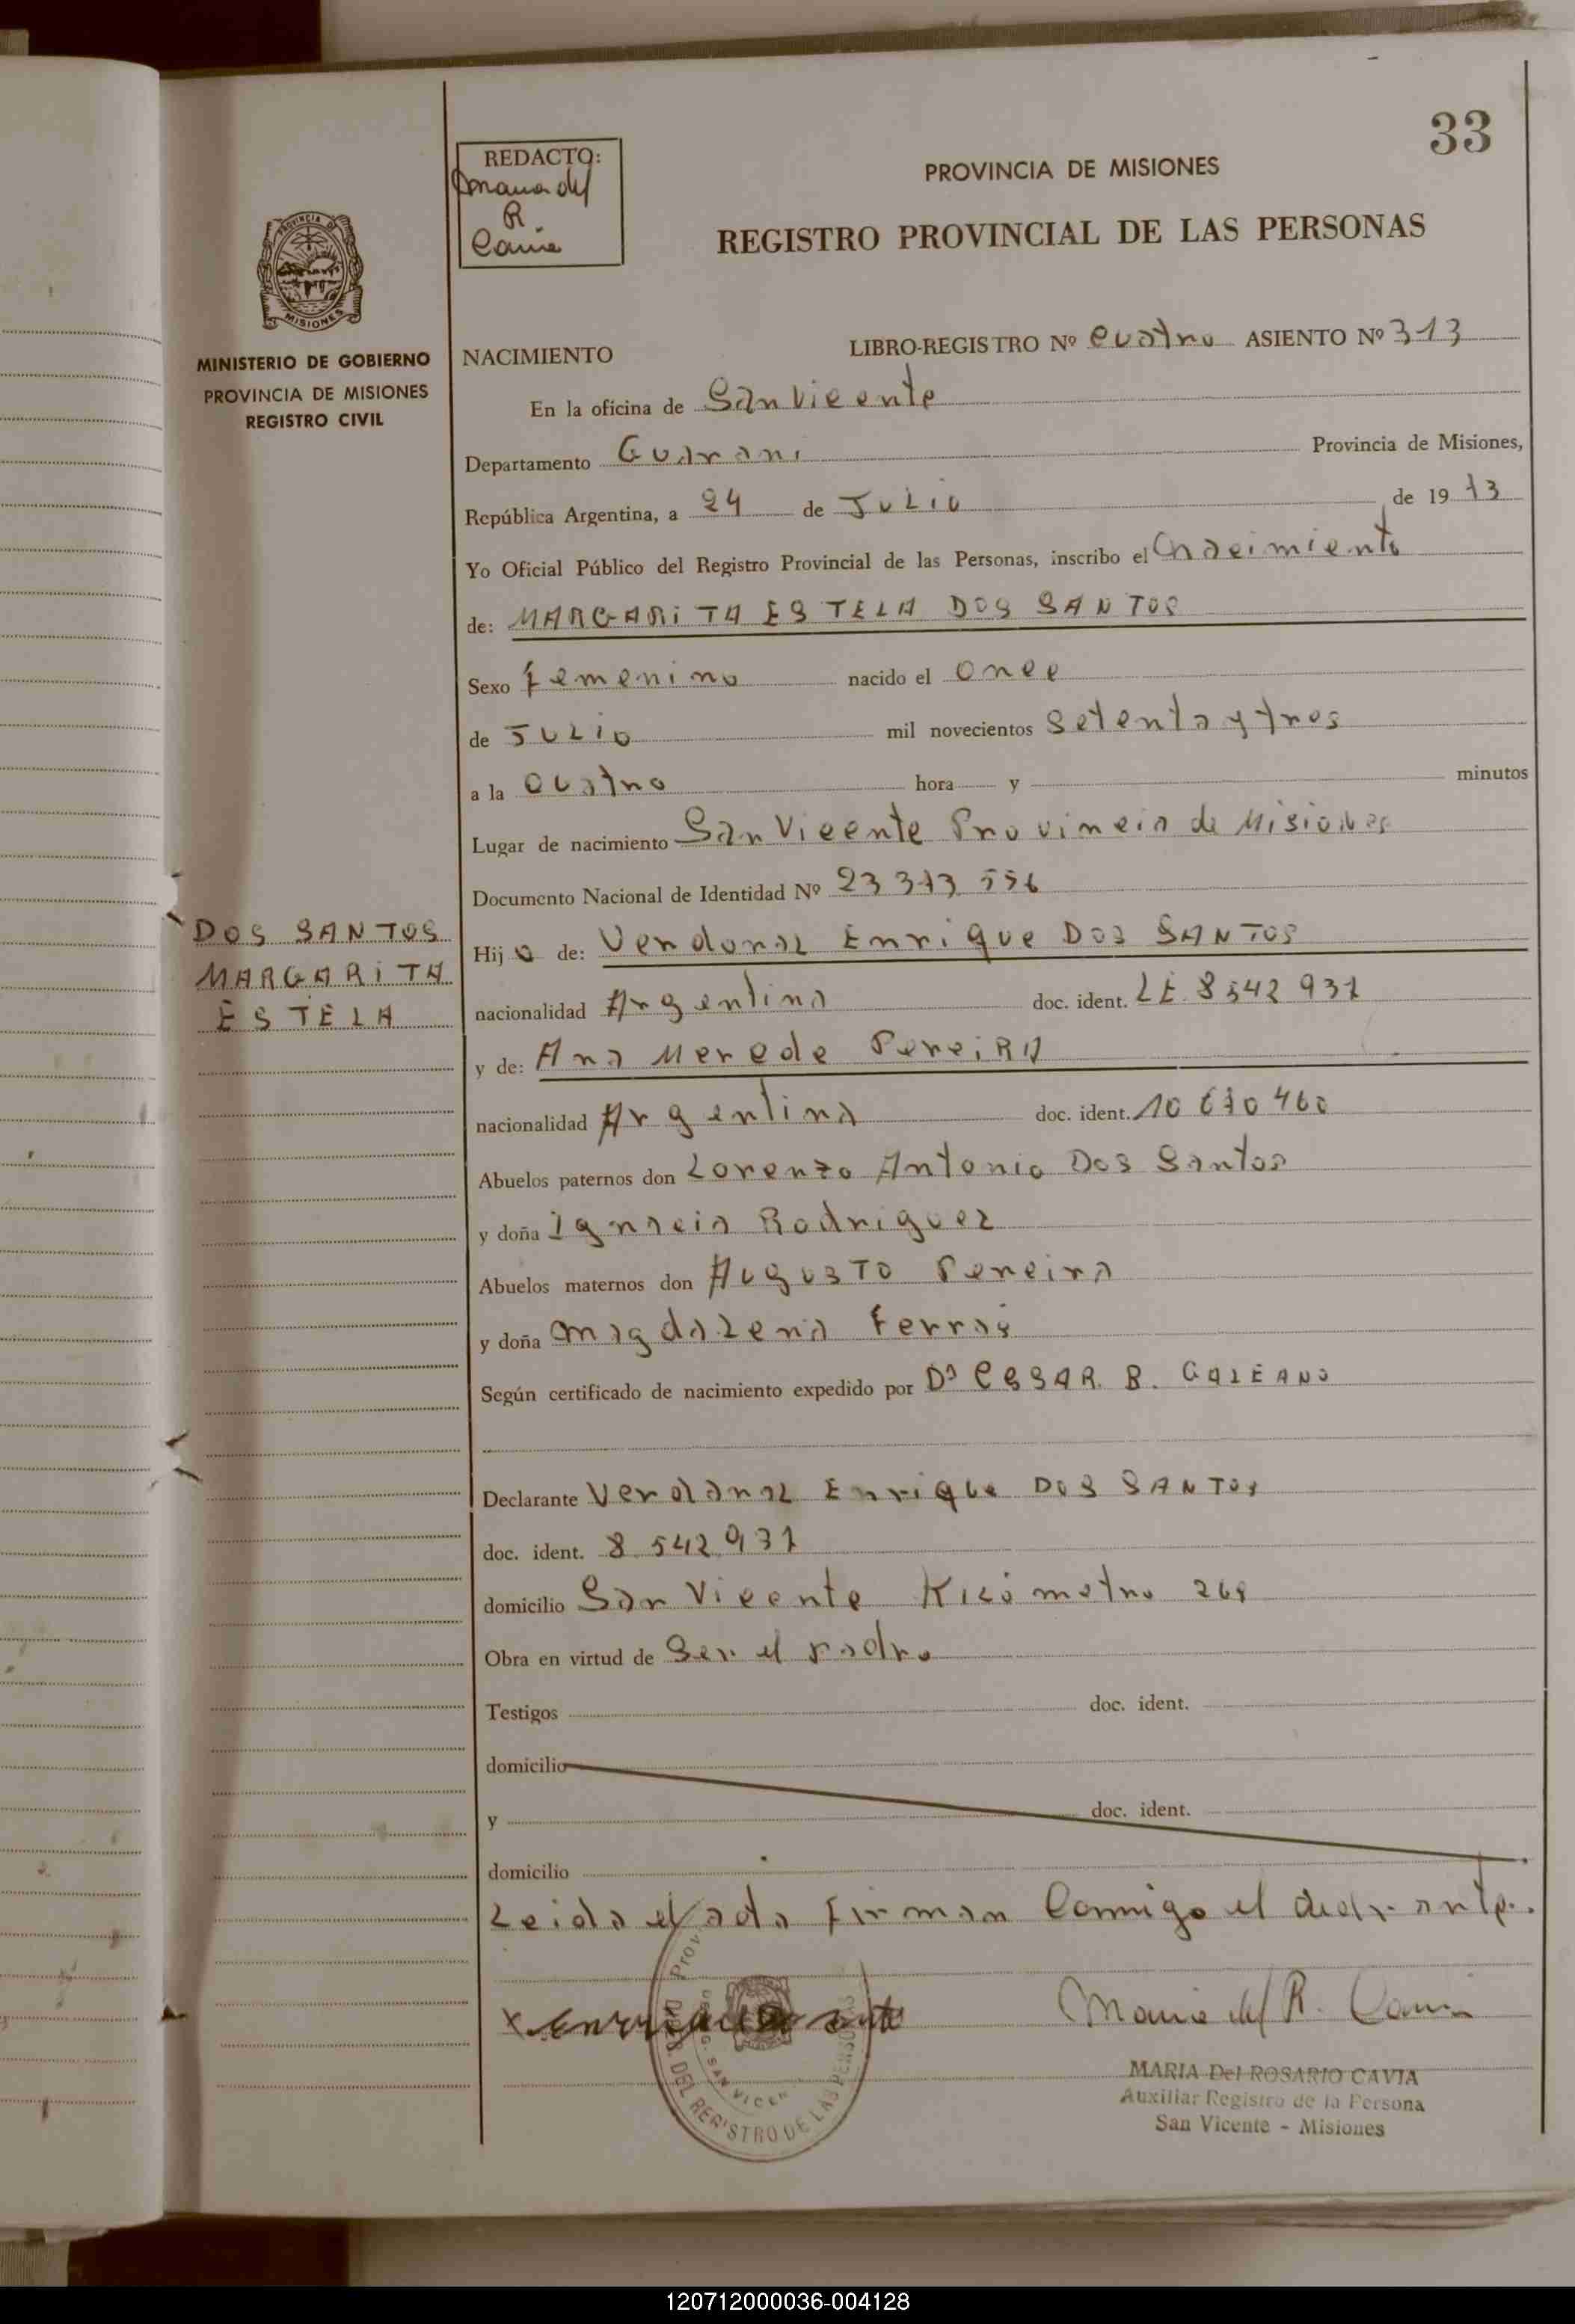 33
REDACTO:
Maria del
R
Cavia
PROVINCIA DE MISIONES
REGISTRO PROVINCIAL DE LAS PERSONAS
PROVINCIA DE
MISIONES
MINISTERIO DE GOBIERNO
PROVINCIA DE MISIONES
REGISTRO CIVIL
NACIMIENTO LIBRO-REGISTRO Nº Cuatro ASIENTO Nº 313
En la oficina de San Vicente
Departamento Guarani Provincia de Misiones,
República Argentina, a 24 de Julio de 19 73
Yo Oficial Público del Registro Provincial de las Personas, inscribo el Nacimiento
de: MARGARITA ESTELA DOS SANTOS
Sexo femenino nacido el once
de Julio mil novecientos setenta y tres
a la cuatro hora y minutos
Lugar de nacimiento San Vicente Provincia de Misiones
Documento Nacional de Identidad Nº 23 373 556
DOS SANTOS
MARGARITA
ESTELA
Hij a de: Verdonaz Enrique DOS SANTOS
nacionalidad Argentina doc. ident. LE 8542 931
y de: Ana Merede PereiRA
nacionalidad Argentina doc. ident. 10 670 460
Abuelos paternos don Lorenzo Antonio Dos Santos
y doña Ignacia Rodriguez
Abuelos maternos don Augusto Pereira
y doña Magdalena Ferras
Según certificado de nacimiento expedido por Dr CESAR. B. GALEANO
Declarante Verdanaz Enrique DOS SANTOS
doc. ident. 8 542 931
domicilio San Vicente Kilómetro 268
Obra en virtud de Ser el padre
Testigos doc. ident.
domicilio
y doc. ident.
domicilio
Leida el acta firman Conmigo el declarante.
Maria del R. Cavia
MARIA Del ROSARIO CAVIA
Auxiliar Registro de la Persona
San Vicente - Misiones
DEL REGISTRO DE LAS PERSONAS
SAN VICEN
120712000036-004128